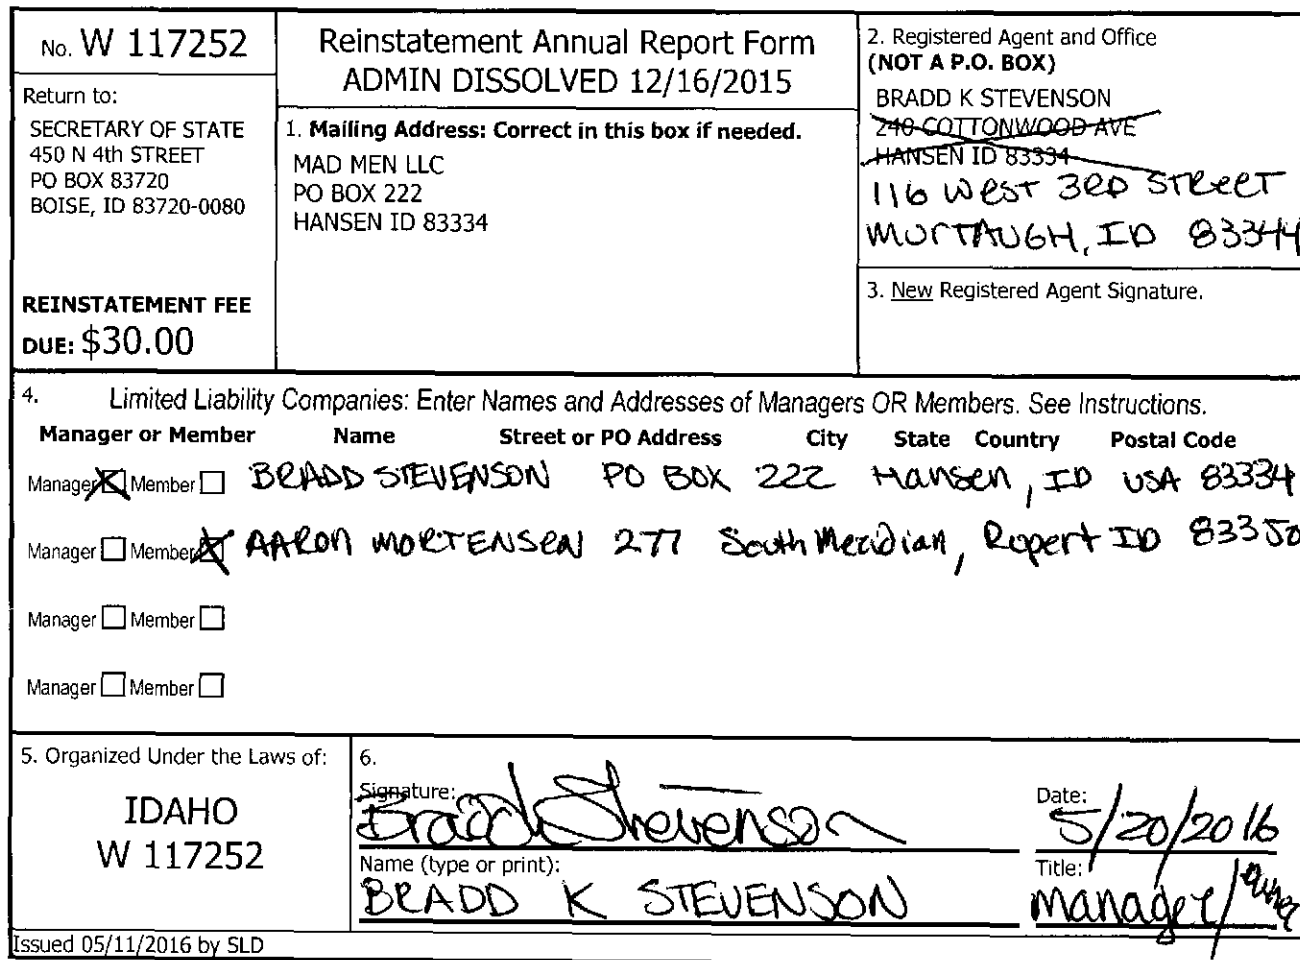 No. W 117252
Return to:
SECRETARY OF STATE
450 N 4th STREET
PO BOX 83720
BOISE, ID 83720-0080
REINSTATEMENT FEE
DUE: $30.00
Reinstatement Annual Report Form
ADMIN DISSOLVED 12/16/2015
1. Mailing Address: Correct in this box if needed.
MAD MEN LLC
PO BOX 222
HANSEN ID 83334
2. Registered Agent and Office
(NOT A P.O. BOX)
BRADD K STEVENSON
240 COTTONWOOD AVE
HANSEN ID 83334
116 West 3RD STReeT
MUrTAUGH, ID 83344
3. New Registered Agent Signature.
4. Limited Liability Companies: Enter Names and Addresses of Managers OR Members. See Instructions.
Manager or Member Name Street or PO Address City State Country Postal Code
Manager Member BRADD STEVENSON PO BOX 222 Hansen, ID USA 83334
Manager Member AARON MORTENSEN 277 South Meridian, Rupert ID 83350
Manager Member
Manager Member
5. Organized Under the Laws of:
IDAHO
W 117252
6.
Signature: Bradd Stevenson
Date: 5/20/2016
Name (type or print):
BRADD K STEVENSON
Title:
manager/owner
Issued 05/11/2016 by SLD